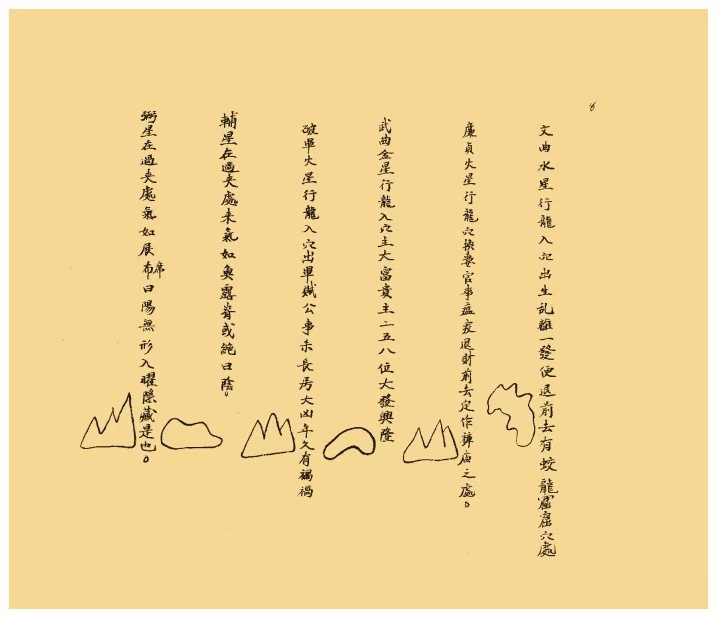 6
文曲水星行龍入穴出生乱雖一發便退前去有蛟龍窟窟穴處
廉貞火星行龍穴換妻官事瘟疫退財前去定作神庙之處。
武曲金星行龍入穴主大富貴主二五八位大發興隆
破軍火星行龍入穴出軍賊公事未長房大凶年久有禍禍
輔星在過夾處來氣如魚露脊或純曰陰。
弼星在過夾處氣如展布席曰陽無形入曜隱藏是也。